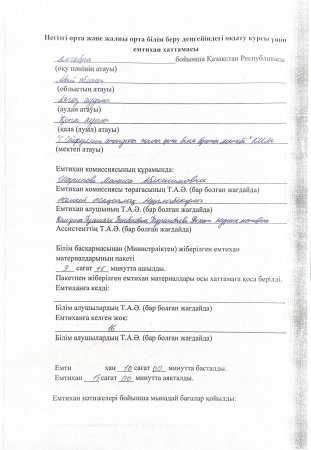 Негізгі орта және жалпы орта білім беру деңгейіндегі оқыту курсы үшін
емтихан хаттамасы
алгебра бойынша Қазақстан Республикасы
(оқу пәнінің атауы)
Абай облысы
(облыстың атауы)
Аягөз ауданы
(аудан атауы)
ауылы
(қала (ауыл) атауы)
жалпы орта білім беретін мектебі" КММ
(мектеп атауы)
Емтихан комиссиясының құрамында:
Емтихан комиссиясы төрағасының Т.А.Ә. (бар болған жағдайда)
Емтихан алушының Т.А.Ә. (бар болған жағдайда)
Ассистенттің Т.А.Ә. (бар болған жағдайда)
Білім басқармасынан (Министріктен) жіберілген емтихан
материалдарының пакеті
9 сағат минутта ашылды.
Пакетпен жіберілген емтихан материалдары осы хаттамаға қоса берілді.
Емтиханға келді:
Білім алушылардың Т.А.Ә. (бар болған жағдайда)
Емтиханға келген жоқ:
16
Білім алушылардың Т.А.Ә. (бар болған жағдайда)
Емти хан 10 сағат 00 минутта басталды.
Емтихан сағат 00 минутта аяқталды.
Емтихан нәтижелері бойынша мынадай бағалар қойылды: